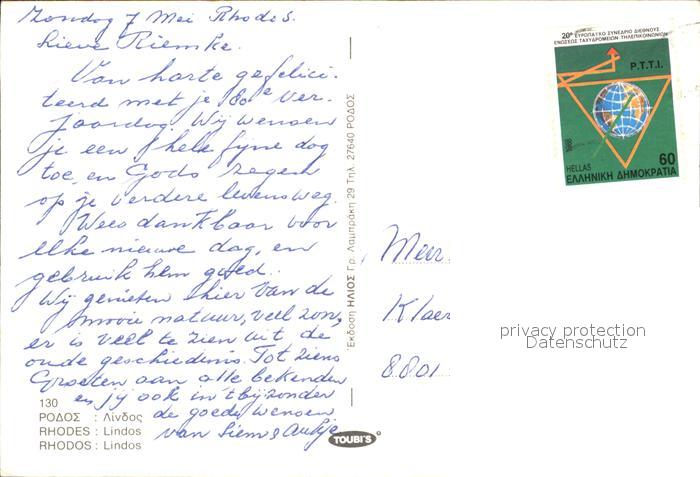 Zondag 7 Mei Rhodos.
Lieve Riemke.
Van harte gefelici-
teerd met je 80e ver-
jaardag. Wij wensen
je een hele fijne dag
toe, en Gods zegen
op je verdere levensweg.
Wees dankbaar voor
elke nieuwe dag, en
gebruik hem goed.
Wij genieten hier van de
mooie natuur, veel zon,
er is veel te zien uit de
oude geschiedenis. Tot ziens
Groeten aan alle bekenden
en jij ook in 't bijzonder
de goede wensen
van Siem & Aukje
130
ΡΟΔΟΣ : Λίνδος
RHODES : Lindos
RHODOS : Lindos
TOUBI'S
Έκδοση ΗΛΙΟΣ Γρ. Λαμπράκη 29 Τηλ. 27640 ΡΟΔΟΣ
20ο ΕΥΡΩΠΑΪΚΟ ΣΥΝΕΔΡΙΟ ΔΙΕΘΝΟΥΣ
ΕΝΩΣΕΩΣ ΤΑΧΥΔΡΟΜΕΙΩΝ-ΤΗΛΕΠΙΚΟΙΝΩΝΙΩΝ
P.T.T.I.
1988
HELLAS 60
ΕΛΛΗΝΙΚΗ ΔΗΜΟΚΡΑΤΙΑ
Mevr.
Klaer
8801
privacy protection
Datenschutz